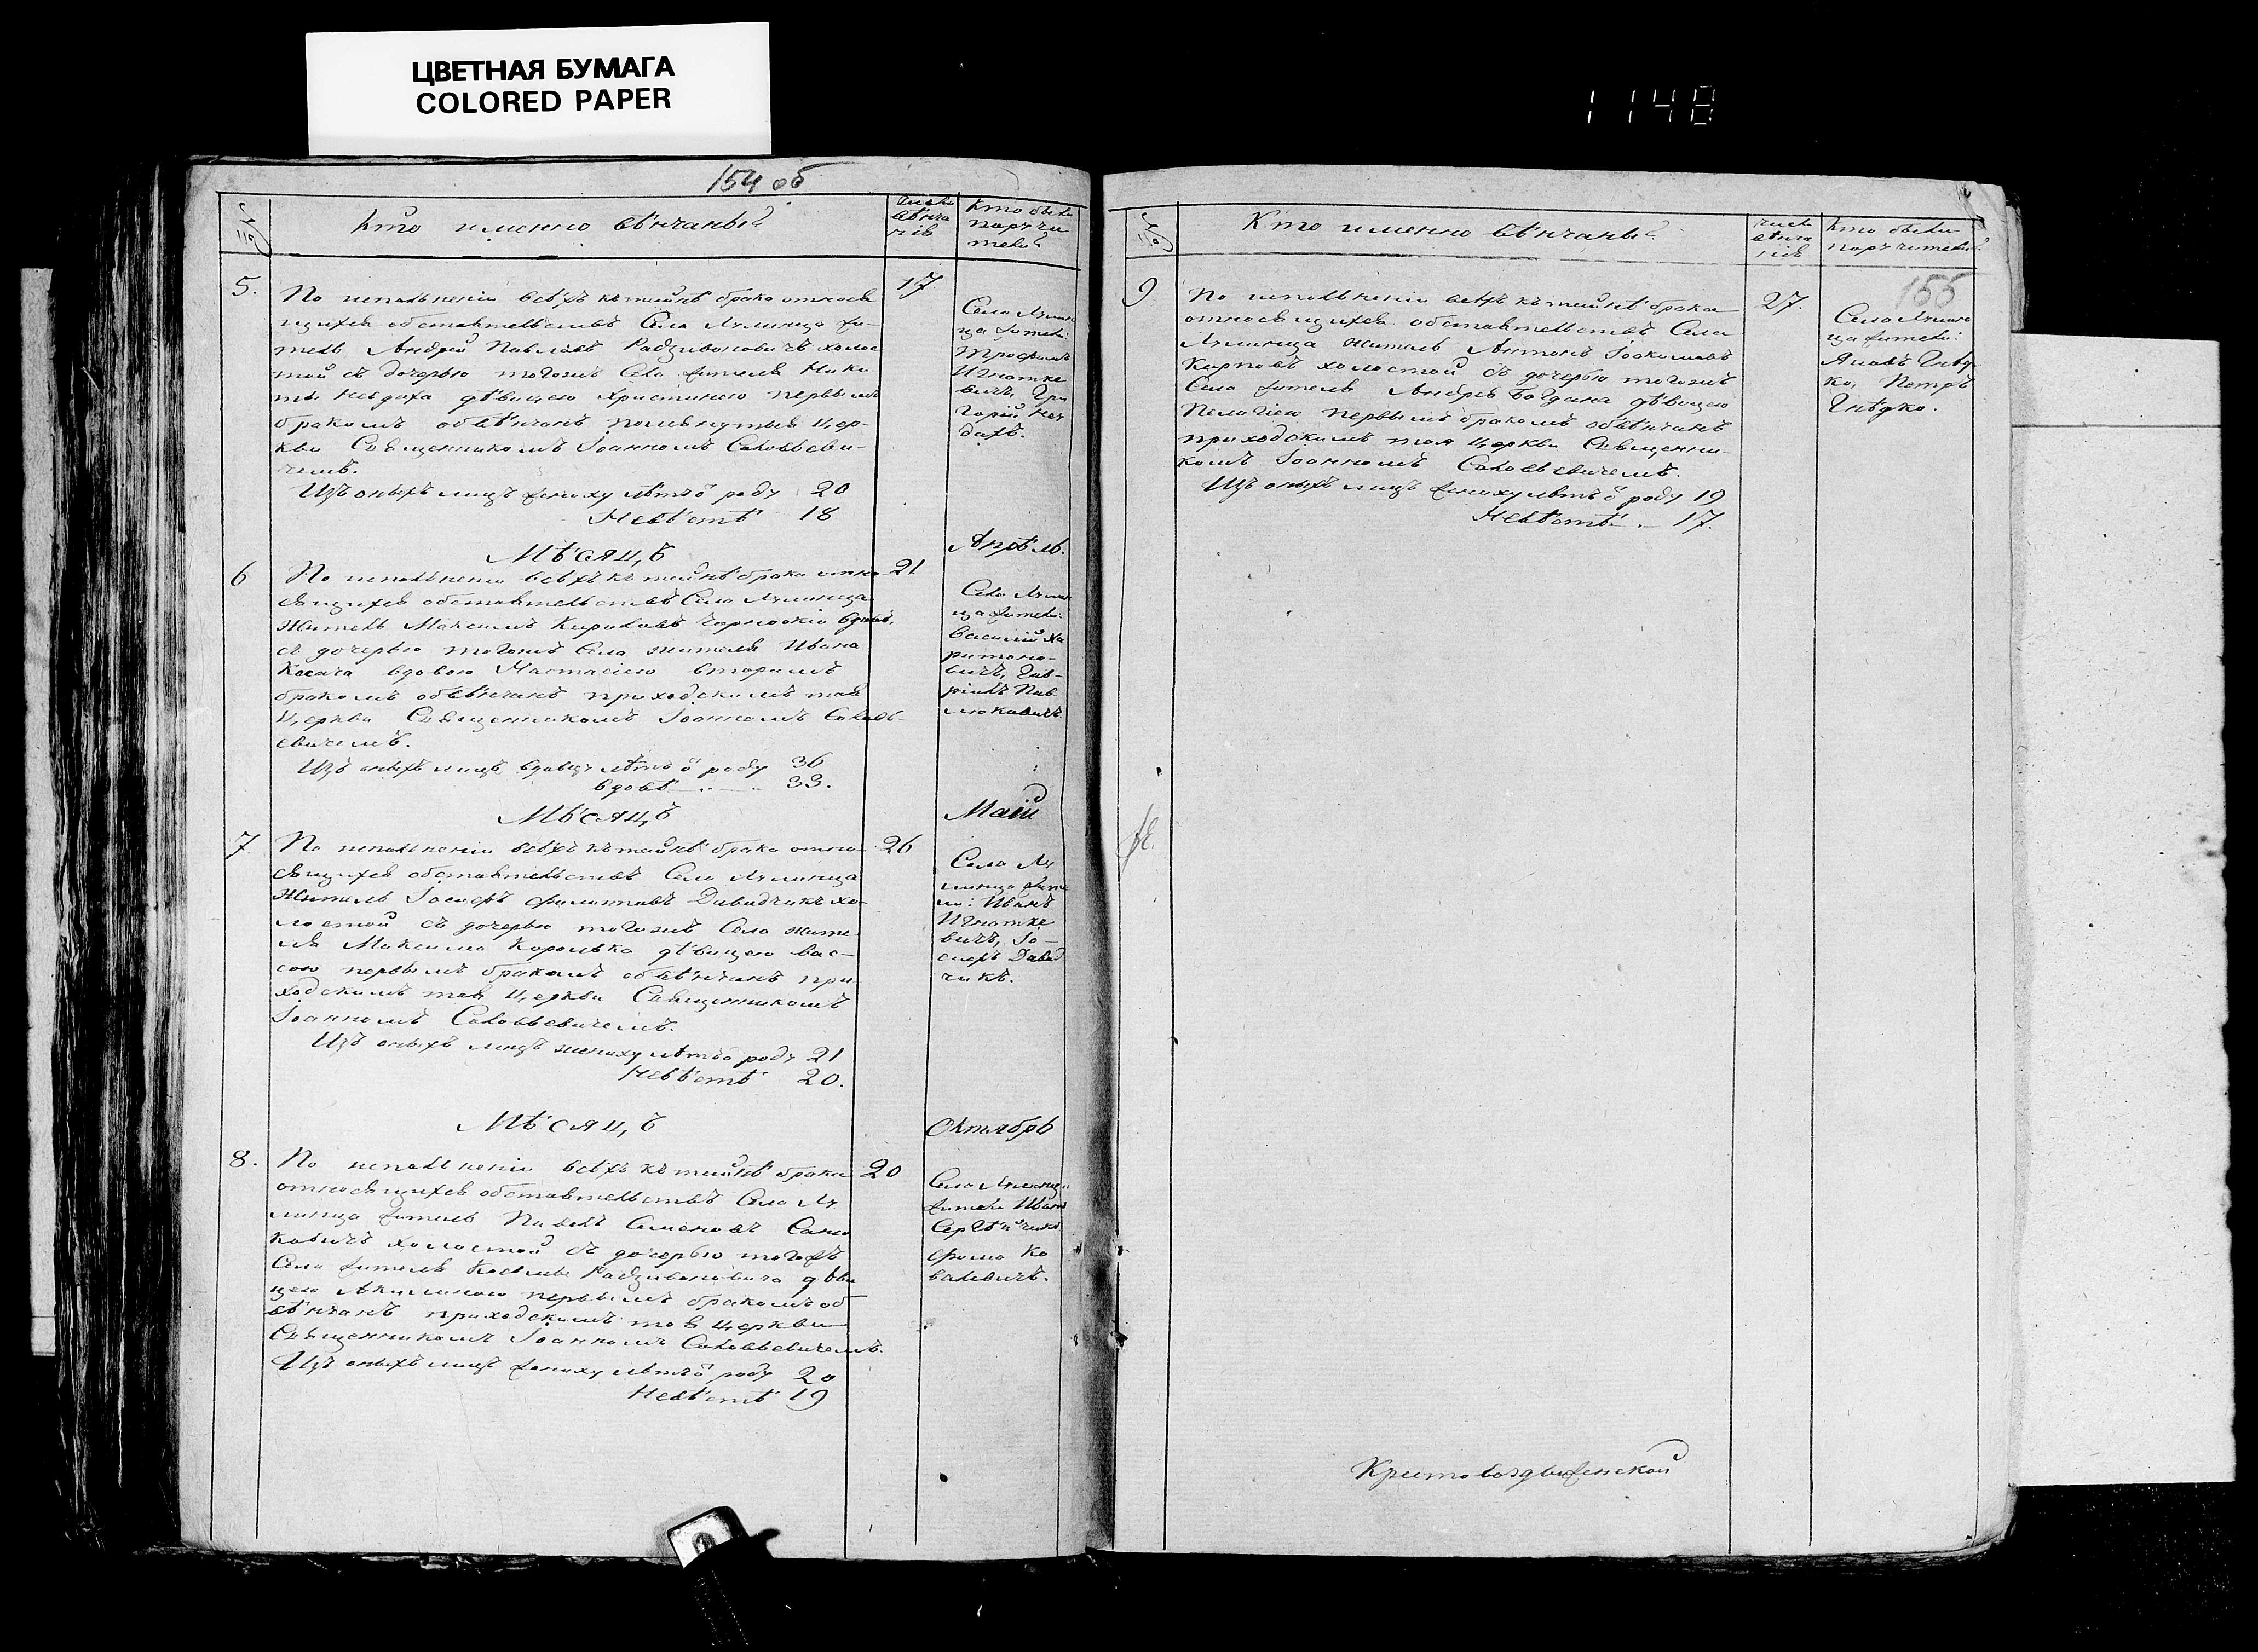 ЦВЕТНАЯ БУМАГА
COLORED PAPER
1148
154 об
Кто именно вѣнчаны?
число
вѣнча
нія
Кто были
поручи
тели?
5.
По исполненіи всѣхъ къ тайнѣ брака относя
щихся обстоятельствъ Села Лулинца жи-
тель Андрей Павловъ Радзивоновичъ холос
той съ дочерью тогожъ Села жителя Ники
ты Невдаха дѣвицею Христиною первымъ
бракомъ обвѣнчанъ помянутыя Цер-
кви Священникомъ Іоанномъ Соловьеви-
чемъ.
Изъ оныхъ лицъ жениху лѣтъ ѿ роду 20
Невѣстѣ 18
17
Села Лулин
ца жители:
Трофимъ
Игнатке
вичъ, Гри
горій Нев
дахъ.
Мѣсяцъ
Апрѣль.
6
По исполненіи всѣхъ къ тайнѣ брака отно
сящихся обстоятельствъ Села Лулинца
Житель Максимъ Кириловъ вдовъ,
съ дочерью тогожъ Села жителя Ивана
Касача вдовою Настасіею вторымъ
бракомъ обвѣнчанъ приходскимъ тоя
Церкви Священникомъ Іоанномъ Соловь-
евичемъ.
Изъ оныхъ лицъ вдовцу лѣтъ ѿ роду 36
вдовѣ 33.
21
Села Лулин
ца жители:
Василій Ха
ритоно-
вичъ, Гав-
ріилъ Пав
люковичъ.
Мѣсяцъ
Маій
7
По исполненіи всѣхъ къ тайнѣ брака отно
сящихся обстоятельствъ Села Лулинца
Житель Іосифъ Филиповъ Давидчикъ хо-
лостой съ дочерью тогожъ Села жите
ля Максима Королька дѣвицею Вас-
сою первымъ бракомъ обвѣнчанъ при
ходскимъ тоя Церкви Священникомъ
Іоанномъ Соловьевичемъ.
Изъ оныхъ лицъ жениху лѣтъ ѿ роду 21
Невѣстѣ 20.
26
Села Лу
линца жите
ли: Иванъ
Игнатке
вичъ, Іо-
сифъ Давид
чикъ.
Мѣсяцъ
Октябрь
8.
По исполненіи всѣхъ къ тайнѣ брака
относящихся обстоятельствъ Села Лу
линца житель Павелъ Семеновъ
холостой съ дочерью тогожъ
Села жителя Радзивоновича дѣви
цею Акилиною первымъ бракомъ об
вѣнчанъ приходскимъ тоя Церкви
Священникомъ Іоанномъ Соловьевичемъ.
Изъ оныхъ лицъ жениху лѣтъ ѿ роду 20
Невѣстѣ 19
20
Села Лулинца
жители Иванъ
Фома Ко
валевичъ.
Кто именно вѣнчаны?
число
вѣнча
нія
Кто были
поручители?
155
9
По исполненіи всѣхъ къ тайнѣ брака
относящихся обстоятельствъ Села
Лулинца житель Антонъ Іоакимовъ
Карповъ холостой съ дочерью тогожъ
Села жителя Андрея Богдана дѣвицею
Пелагіею первымъ бракомъ обвѣнчанъ
приходскимъ тоя Церкви Священни
комъ Іоанномъ Соловьевичемъ.
Изъ оныхъ лицъ жениху лѣтъ ѿ роду 19
Невѣстѣ 17.
27.
Села Лулин
ца жители:
Яковъ Гнѣд
ко, Петръ
Гнѣдко.
Крестовоздвиженской